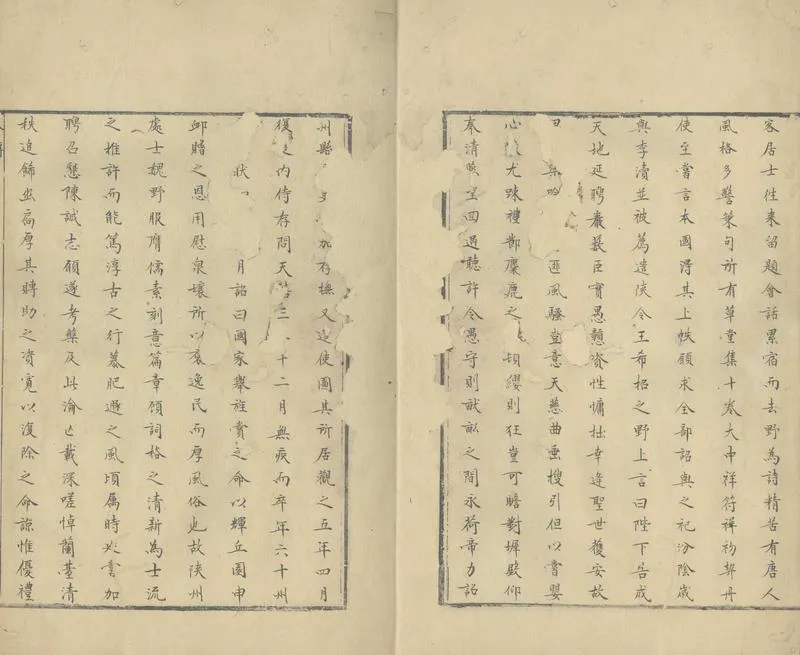 家居士往來留題會話累宿而去野為詩精苦有唐人
風格多警策句所有草堂集十卷大中祥符初契丹
使至嘗言本國得其上帙願求全部詔與之祀汾陰歲
與李瀆並被薦遣陜令王希招之野上言曰陛下告成
天地延聘巖藪臣實愚戇資性慵拙幸逢聖世獲安故
吟 風騷豈意天慈曲垂搜引但以嘗嬰
心 尤踈禮節麋鹿之 頓纓則狂豈可瞻對墀陛仰
奉清 望回過聽許令愚守則畎畝之間永荷帝力詔
州縣 加存撫又遣使圖其所居觀之五年四月
復 內侍存問天 三 十二月無疾而卒年六十州
狀 月詔曰國家舉旌賁之命以輝丘園申
䘏贈之恩用慰泉壤所以褒逸民而厚風俗也故陜州
處士魏野服膺儒素刻意篇章頎詞格之清新為士流
之推許而能篤淳古之行慕肥遯之風頃屬時 書加
聘召懇陳誠志願遂考槃及此淪亡載深嗟悼蘭臺清
秩追飾幽扃厚其賻助之資寬以復除之命諒惟優禮